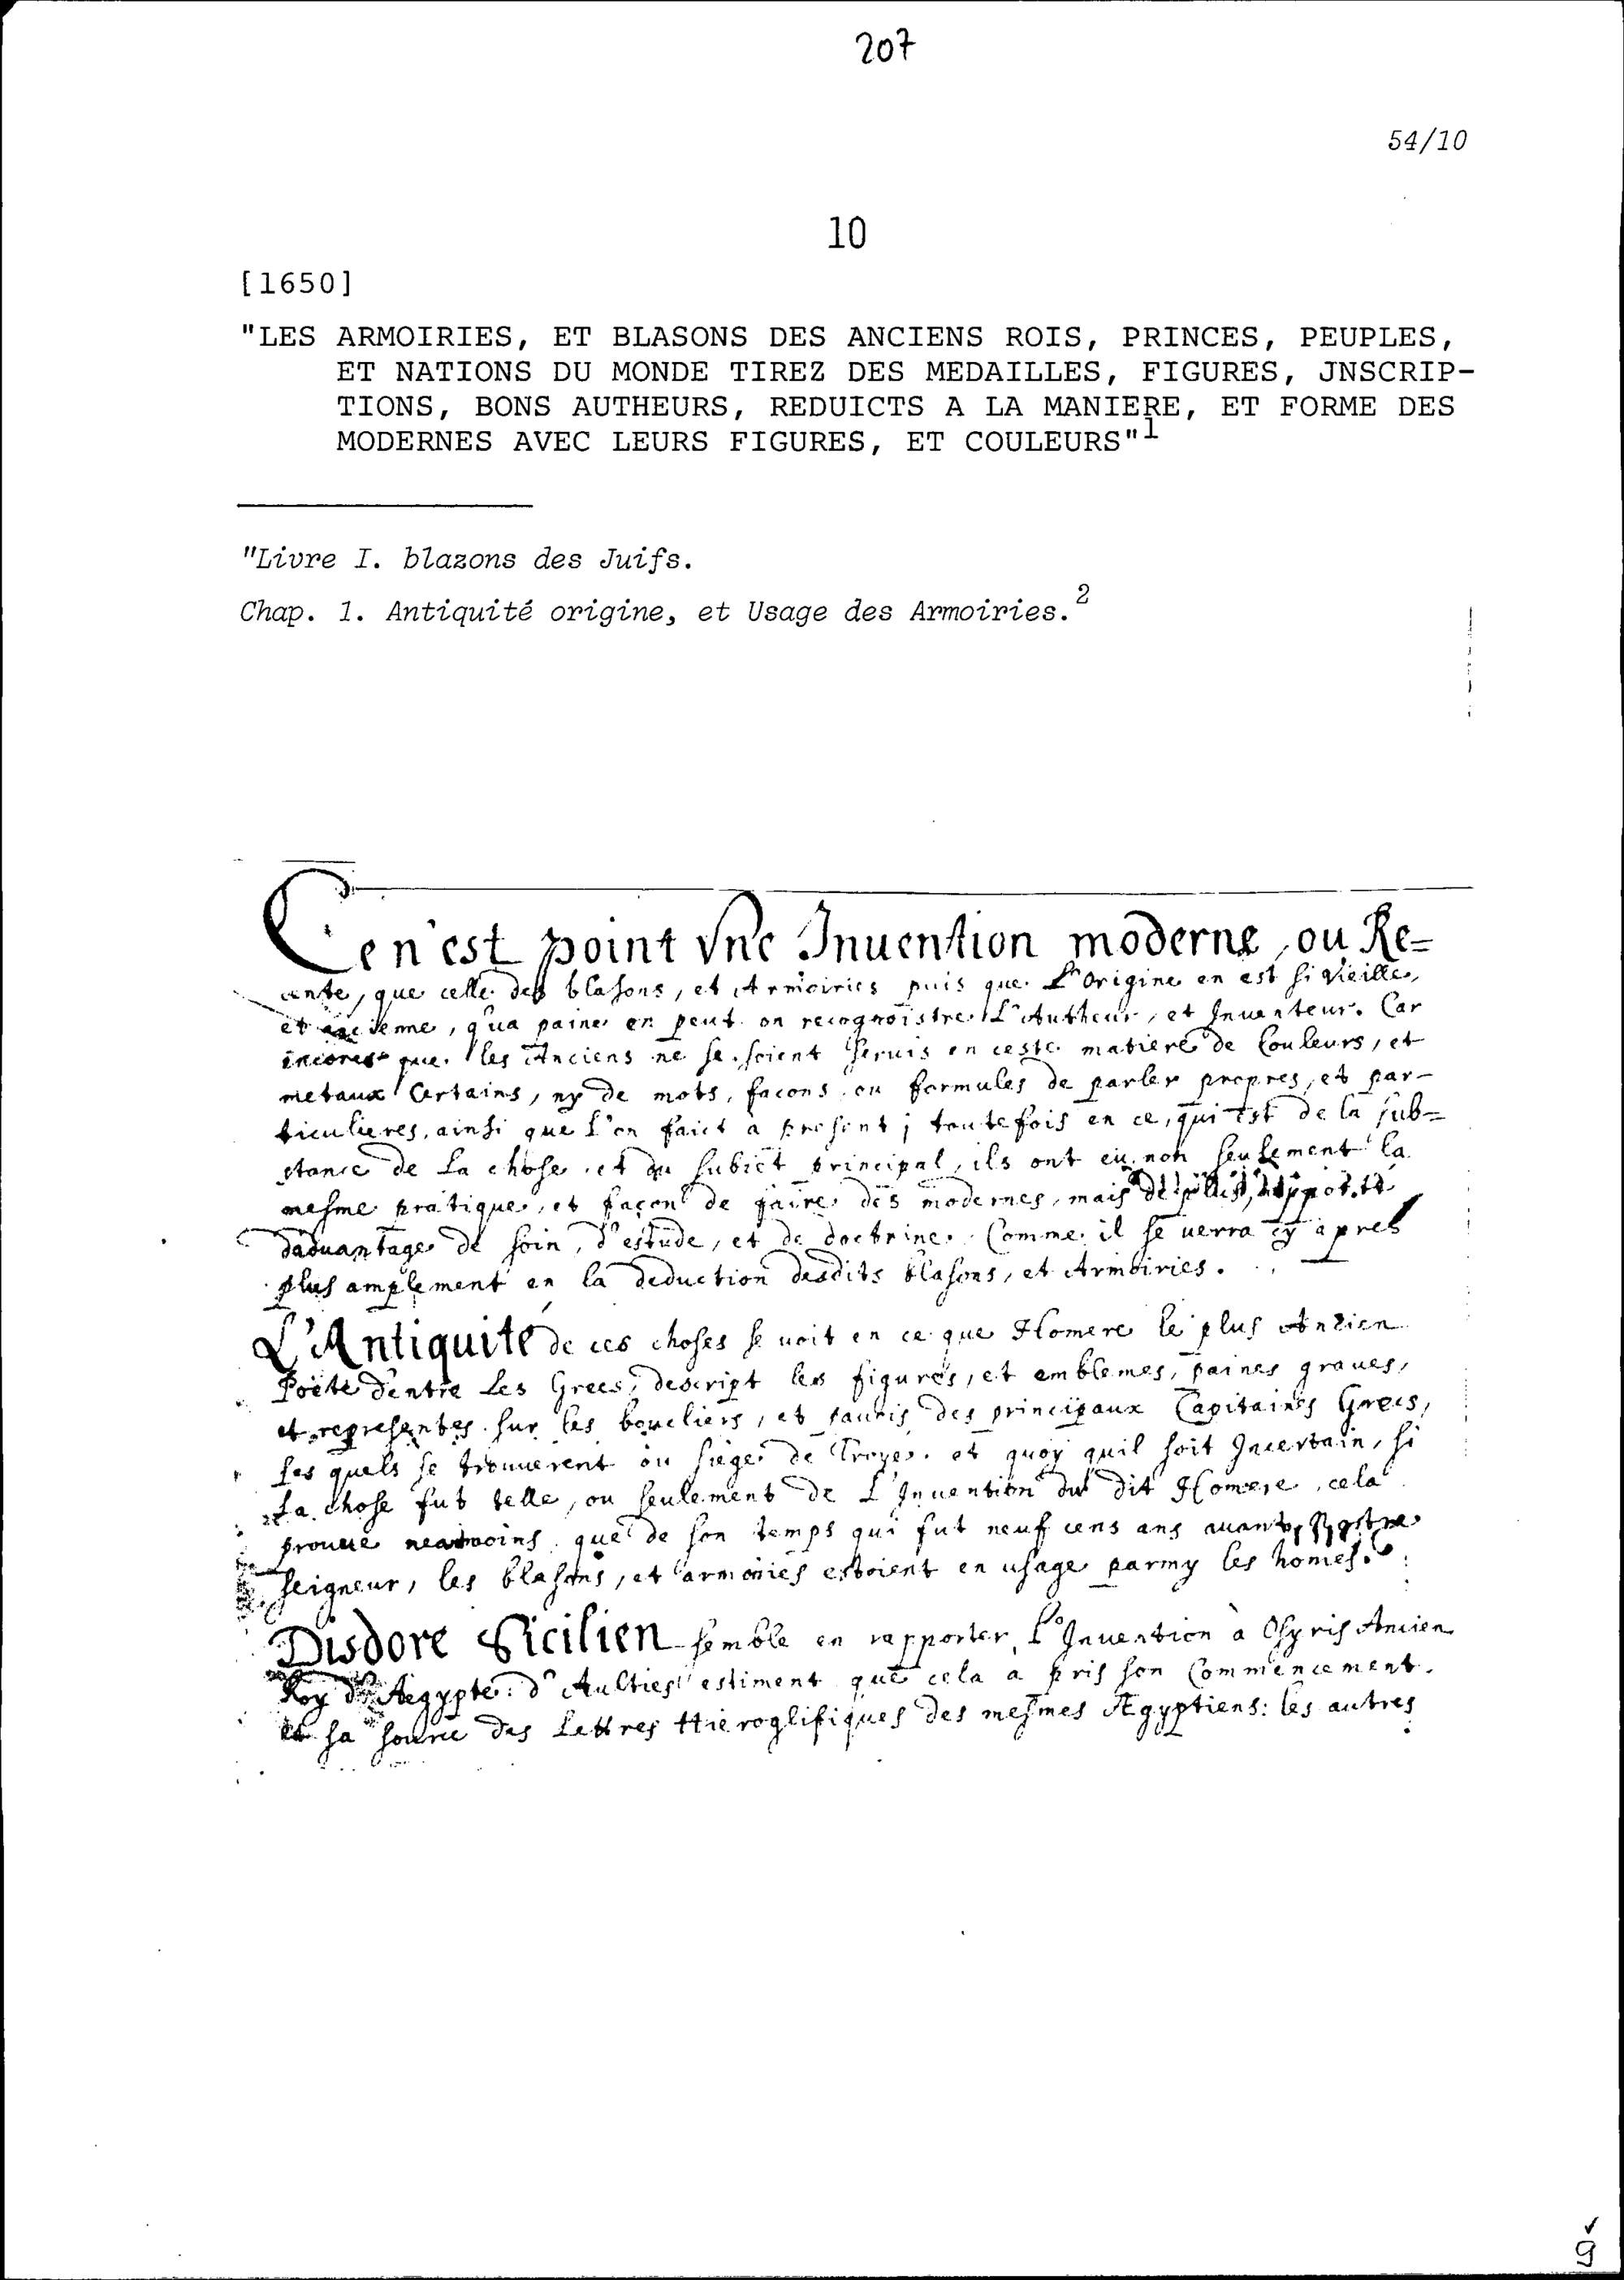 207
54/10
10
[1650]
"LES ARMOIRIES, ET BLASONS DES ANCIENS ROIS, PRINCES, PEUPLES,
ET NATIONS DU MONDE TIREZ DES MEDAILLES, FIGURES, JNSCRIP-
TIONS, BONS AUTHEURS, REDUICTS A LA MANIERE, ET FORME DES
MODERNES AVEC LEURS FIGURES, ET COULEURS"1
"Livre I. blazons des Juifs.
Chap. 1. Antiquité origine, et Usage des Armoiries.2
Ce n'est point Vne Inuention moderne, ou Re=
cente, que celle des blasons, et Armoiries puis que L'Origine en est si vieille,
et ancienne, qu'a paine en peut on recognoistre L'Autheur, et Inuenteur. Car
encores que les Anciens ne se soient seruis en ceste matiere de Couleurs, et
metaux Certains, ny de mots, facons ou formules de parler propres, et par-
ticulieres, ainsi que l'on faict a present; toutefois en ce, qui est de la sub=
stance de la chose et du subiect principal, ils ont eu non seulement la
mesme pratique, et façon de faire des modernes, mais de plus,
daduantage de soin, d'estude, et de doctrine. Comme il se uerra cy apres
plus amplement en la deduction desdits blasons, et Armoiries.
L'Antiquité de ces choses se uoit en ce que Homere le plus Ancien
Poëte d'entre les Grecs, descript les figures, et emblemes, paines graues,
et representes sur les boucliers, et pauois des principaux Capitaines Grecs,
les quels se trouuerent ou siege de Troye. et quoy quil soit Incertain, si
la chose fut telle, ou seulement de L'Inuention du dit Homere, cela
prouue neatmoins que de son temps qui fut neuf cens ans auant Nostre
seigneur, les blasons, et armoiries estoient en usage parmy les homes.
Disdore Sicilien semble en rapporter L'Inuention à Osyris Ancien
Roy d'Aegypte. d'Aultres estiment que cela a pris son Commencement
et sa source des Lettres Hieroglifiques des mesmes Ægyptiens: les autres
9